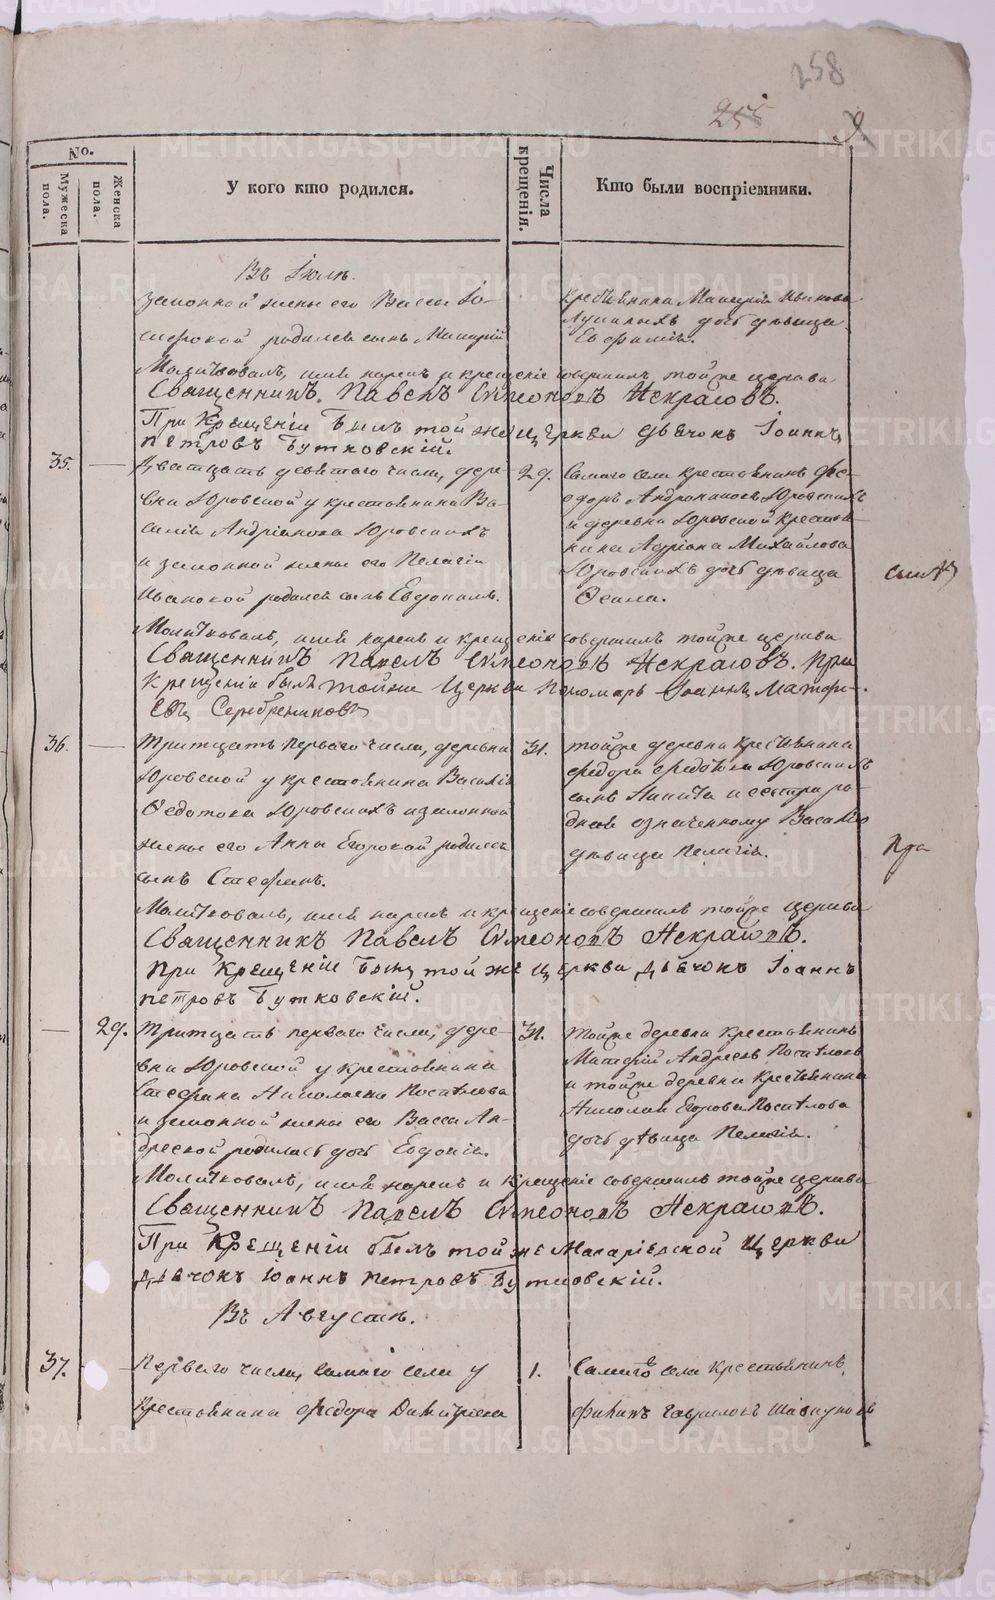 258
No.
Мужеска пола.
Женска пола.
У кого кто родился.
Числа крещенія.
Кто были воспріемники.
Въ Іюлѣ.
законной жены его Вассы Іо-
сифовой родился сынъ Макарій
крестьянина Макарія Иванова
дочь дѣвица
Евфимія.
Молитвовалъ, имя нарекъ и крещеніе совершилъ тойже церкви
Священникъ Павелъ Симеоновъ Некрасовъ.
При Крещеніи былъ той же церкви дьячокъ Іоаннъ
Петровъ Бутковскій.
35.
Двадцать девятаго числа, дере-
вни Юровской у крестьянина Ва-
силія Андріанова Юровскихъ
и законной жены его Пелагіи
Ивановой родился сынъ Евдокимъ.
29.
Самаго села крестьянинъ Фе-
доръ Андрониковъ Юровскихъ
и деревни Юровской крестья-
нина Адріана Михайлова
Юровскихъ дочь дѣвица
Ѳекла.
Молитвовалъ, имя нарекъ и крещеніе совершилъ тойже церкви
Священникъ Павелъ Симеоновъ Некрасовъ. При
Крещеніи былъ тойже Церкви Пономарь Іоаннъ Матфи-
евъ Серебренниковъ
36.
Тритцать перваго числа, деревни
Юровской у крестьянина Василія
Ѳедотова Юровскихъ и законной
жены его Анны Егоровой родился
сынъ Стефанъ.
31.
тойже деревни крестьянина
Федора Федотова Юровскихъ
сынъ Никита и сестра ро-
дная означенному Василію
дѣвица Пелагія.
Молитвовалъ, имя нарекъ и крещеніе совершилъ тойже церкви
Священникъ Павелъ Симеоновъ Некрасовъ.
При Крещеніи былъ той же церкви дьячокъ Іоаннъ
Петровъ Бутковскій.
29.
Тритцать перваго числа, дере-
вни Юровской у крестьянина
Стефана Николаева Поспѣлова
и законной жены его Вассы Ан-
дреевой родилась дочь Евдокія.
31.
Тойже деревни крестьянинъ
Матфій Андреевъ Поспѣловъ
и тойже деревни крестьянина
Николая Егорова Поспѣлова
дочь дѣвица Пелагія.
Молитвовалъ, имя нарекъ и крещеніе совершилъ тойже церкви
Священникъ Павелъ Симеоновъ Некрасовъ.
При Крещеніи былъ той же Макаріевской церкви
Дьячокъ Іоаннъ Петровъ Бутковскій.
Въ Августѣ.
37.
Перваго числа, самаго села у
крестьянина Федора Димитріева
1.
Самаго села крестьянинъ,
Гавриловъ
METRIKI.GASO-URAL.RU